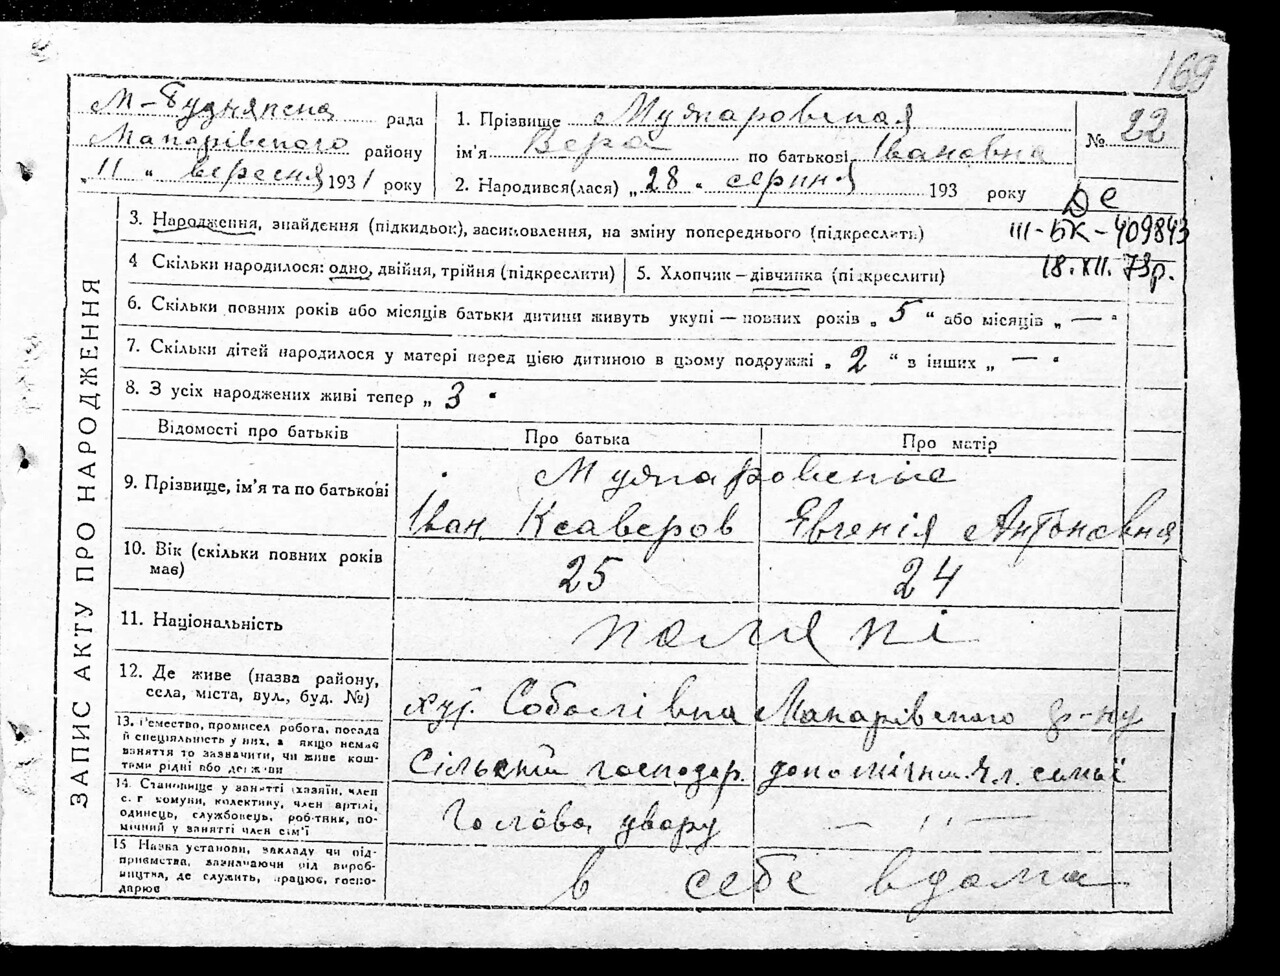 169
М-Будянська рада
Макарівського району
„ 11 " вересня 1931 року
1. Прізвище
ім'я Вера по батькові Івановна
2. Народився(лася) „ 28 " серпня 193 року
№ 22
ДС
III-БК-409843
18.XII.73р.
ЗАПИС АКТУ ПРО НАРОДЖЕННЯ
3. Народження, знайдення (підкидьок), засиновлення, на зміну попереднього (підкреслить)
4 Скільки народилося: одно, двійня, трійня (підкреслити)
5. Хлопчик — дівчинка (підкреслити)
6. Скільки повних років або місяців батьки дитини живуть укупі — повних років „ 5 " або місяців „ — "
7. Скільки дітей народилося у матері перед цією дитиною в цьому подружжі „ 2 " в інших „ — "
8. З усіх народжених живі тепер „ 3 "
Відомості про батьків
Про батька
Про матір
9. Прізвище, ім'я та по батькові
Іван Ксаверов
Євгенія Антоновна
10. Вік (скільки повних років має)
25
24
11. Національність
поляки
12. Де живе (назва району,
села, міста, вул., буд. №)
хут. Соболівка Макарівського р-ну
13. Ремество, промисел робота, посада
й спеціяльність у них, а якщо немає
заняття то зазначити, чи живе кош-
тами рідні або держави
Сільский господар.
допомічний чл. симьї
14. Становище у занятті (хазяїн, член
с. г комуни, колективу, член артілі,
одинець, службовець, робітник, по-
мічний у занятті член сім'ї
Голова двору
— „ —
15 Назва установи, закладу чи під-
приємства, зазначаючи рід вироб-
ництва, де служить, працює, госпо-
дарює
в себе вдома